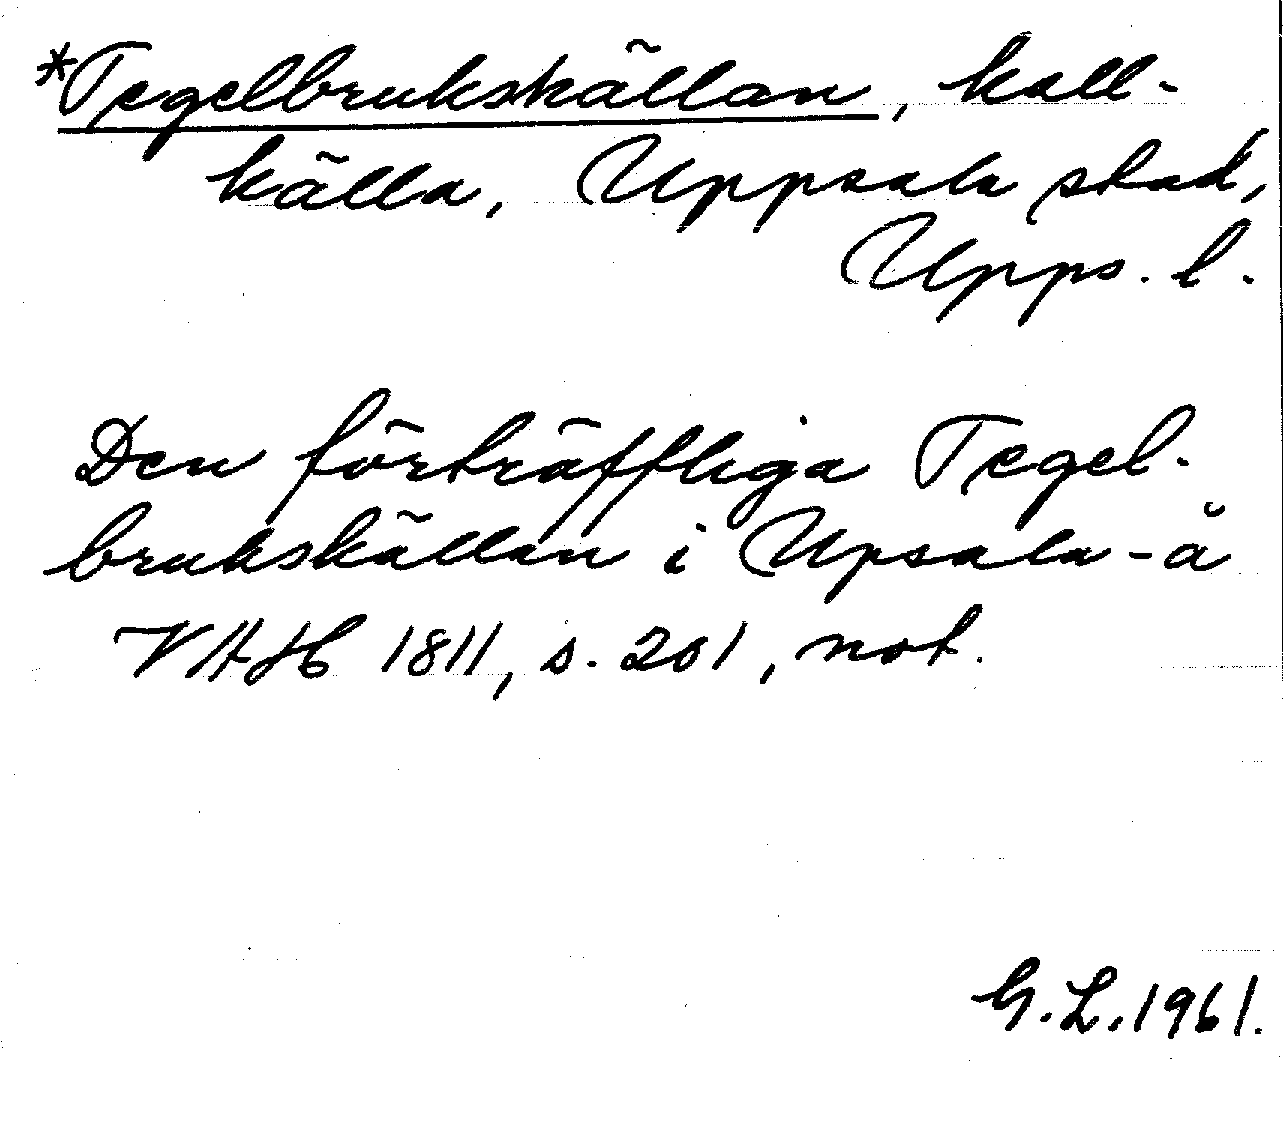 *Tegelbrukskällan, kall-
källa, Uppsala stad,
Upps. l.
Den förträffliga Tegel-
brukskällan i Upsala-å
VHAH 1811, s. 201, not.
G.L. 1961.